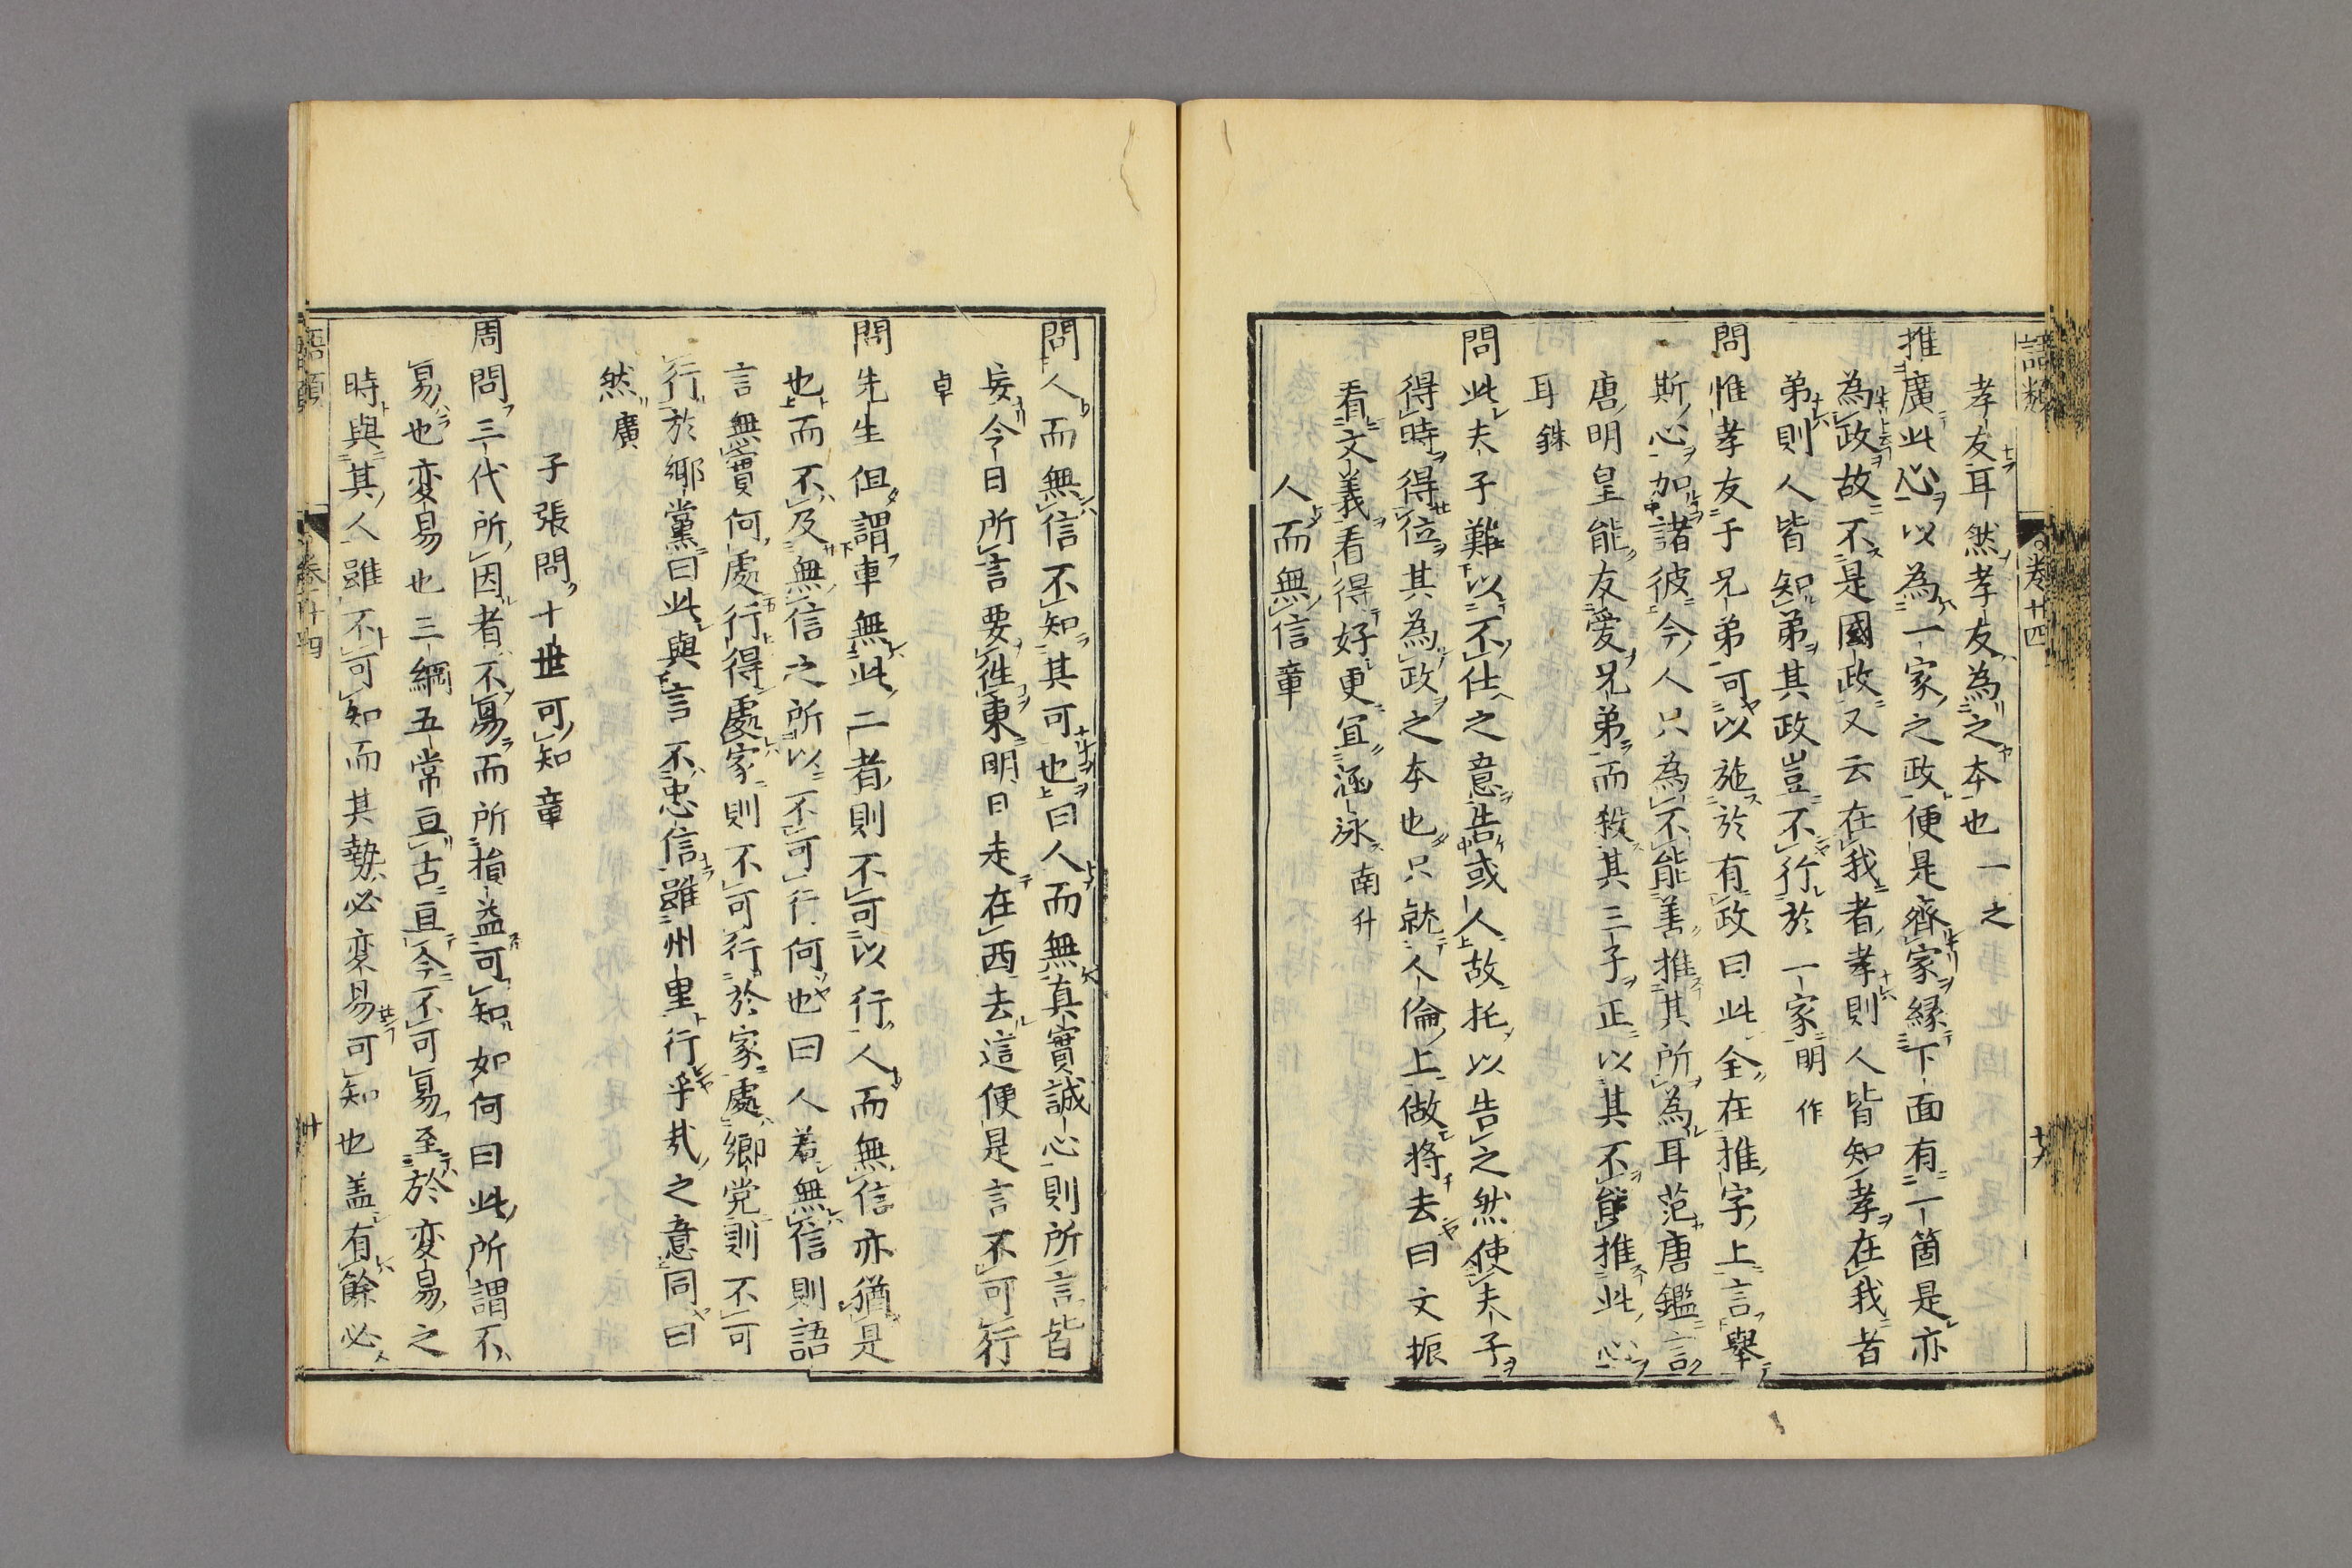 語類 卷廿四
孝友耳然孝友為之本也一之
推廣此心以為一家之政便是齊家縁下面有一箇是亦
為政故不是國政又云在我者孝則人皆知孝在我者
弟則人皆知弟其政豈不行於一家明作
問惟孝友于兄弟可以施於有政曰此全在推字上言舉
斯心加諸彼今人只為不能善推其所為耳范唐鑑言
唐明皇能友愛兄弟而殺其三子正以其不能推此心
耳銖
問此夫子難以不仕之意告或人故托以告之然使夫子
得時得位其為政之本也只就人倫上做将去曰文振
看文義看得好更宜涵泳南升
人而無信章
問人而無信不知其可也曰人而無真實誠心則所言皆
妄今日所言要徃東明日走在西去這便是言不可行
卓
問先生但謂車無此二者則不可以行人而無信亦猶是
也而不及無信之所以不可行何也曰人若無信則語
言無實何處行得處家則不可行於家處鄉党則不可
行於鄉黨曰此與言不忠信雖州里行乎㢤之意同曰
然廣
子張問十世可知章
周問三代所因者不易而所損益可知如何曰此所謂不
易也変易也三綱五常亘古亘今不可易至於変易之
時與其人雖不可知而其勢必変易可知也盖有餘必
語類 卷廿四 廿